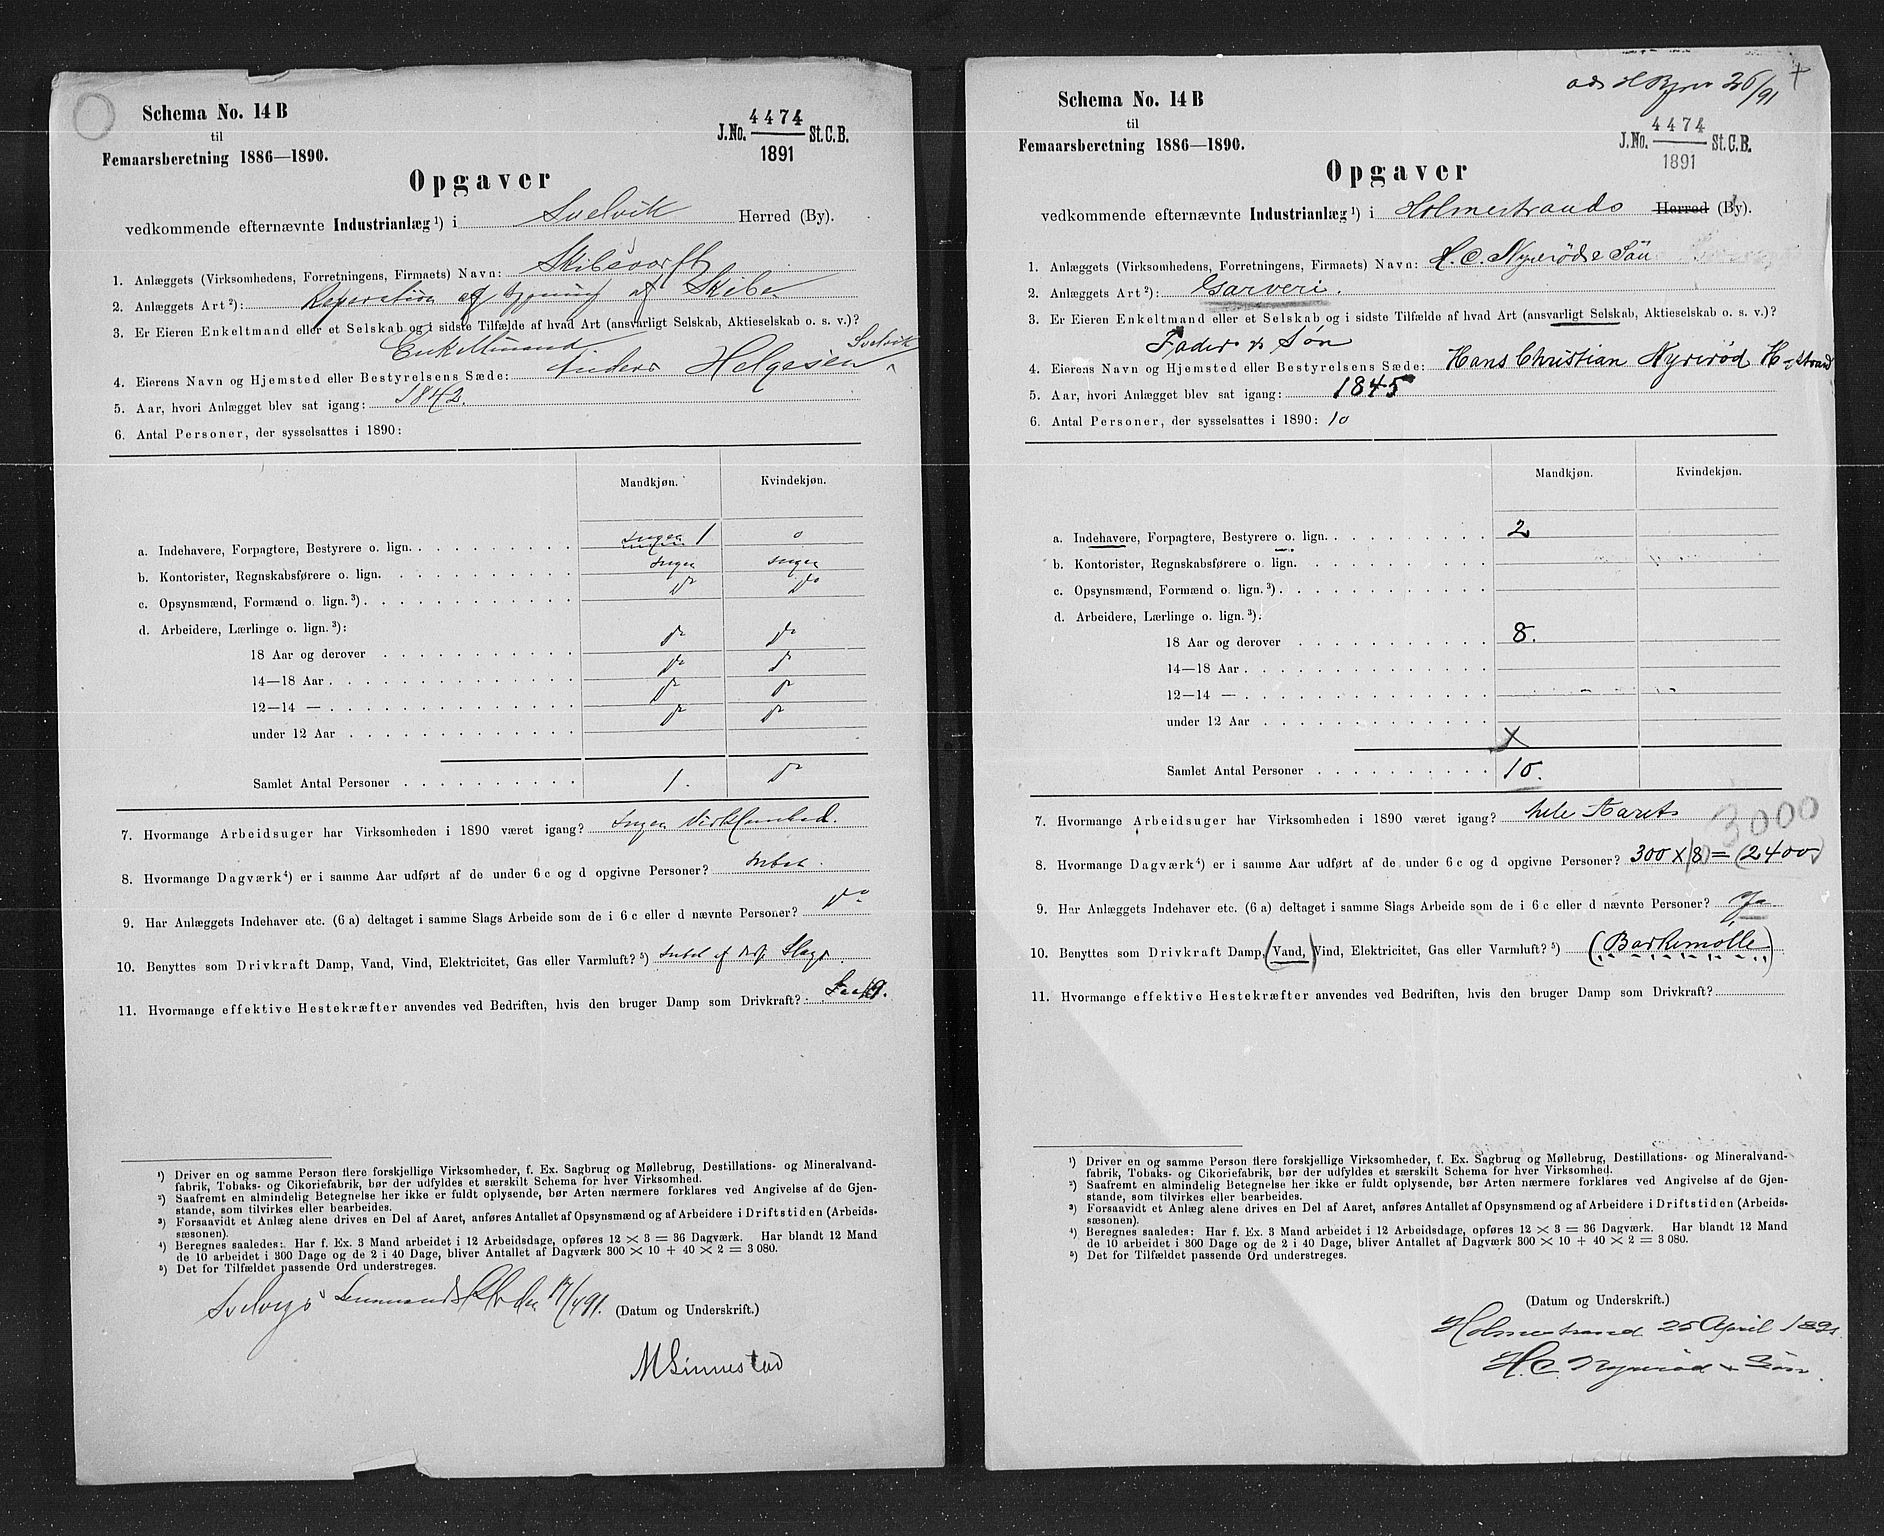 Schema No. 14 B
til
Femaarsberetning 1886—1890.
J.No. 4474 St.C.B.
1891
Opgaver
vedkommende efternævnte Industrianlæg ¹) i Svelvik Herred (By).
1. Anlæggets (Virksomhedens, Forretningens, Firmaets) Navn: Skibsværft
2. Anlæggets Art ²): Reperation af bygning af Skibe
3. Er Eieren Enkeltmand eller et Selskab og i sidste Tilfælde af hvad Art (ansvarligt Selskab, Aktieselskab o. s. v.)?
Enkeltmand
4. Eierens Navn og Hjemsted eller Bestyrelsens Sæde: Anders Helgesen Svelvik
5. Aar, hvori Anlægget blev sat igang: 1842.
6. Antal Personer, der sysselsattes i 1890:
Mandkjøn. Kvindekjøn.
a. Indehavere, Forpagtere, Bestyrere o. lign. Ingen 1 0
b. Kontorister, Regnskabsførere o. lign. Ingen Ingen
c. Opsynsmænd, Formænd o. lign. ³) do do
d. Arbeidere, Lærlinge o. lign. ³):
18 Aar og derover do do
14—18 Aar do do
12—14 — do do
under 12 Aar do do
Samlet Antal Personer 1. do
7. Hvormange Arbeidsuger har Virksomheden i 1890 været igang? Ingen Virksomhed.
8. Hvormange Dagværk ⁴) er i samme Aar udført af de under 6 c og d opgivne Personer? Intet.
9. Har Anlæggets Indehaver etc. (6 a) deltaget i samme Slags Arbeide som de i 6 c eller d nævnte Personer? do
10. Benyttes som Drivkraft Damp, Vand, Vind, Elektricitet, Gas eller Varmluft? ⁵) Intet af Slags
11. Hvormange effektive Hestekræfter anvendes ved Bedriften, hvis den bruger Damp som Drivkraft?:
¹) Driver en og samme Person flere forskjellige Virksomheder, f. Ex. Sagbrug og Møllebrug, Destillations- og Mineralvand-
fabrik, Tobaks- og Cikoriefabrik, bør der udfyldes et særskilt Schema for hver Virksomhed.
²) Saafremt en almindelig Betegnelse her ikke er fuldt oplysende, bør Arten nærmere forklares ved Angivelse af de Gjen-
stande, som tilvirkes eller bearbeides.
³) Forsaavidt et Anlæg alene drives en Del af Aaret, anføres Antallet af Opsynsmænd og af Arbeidere i Driftstiden (Arbeids-
sæsonen).
⁴) Beregnes saaledes: Har f. Ex. 3 Mand arbeidet i 12 Arbeidsdage, opføres 12 × 3 = 36 Dagværk. Har blandt 12 Mand
de 10 arbeidet i 300 Dage og de 2 i 40 Dage, bliver Antallet af Dagværk 300 × 10 + 40 × 2 = 3 080.
⁵) Det for Tilfældet passende Ord understreges.
17/4 91. (Datum og Underskrift.)
M Sinnestad
26/91
Schema No. 14 B
til
Femaarsberetning 1886—1890.
J.No. 4474 St.C.B.
1891
Opgaver
vedkommende efternævnte Industrianlæg ¹) i Holmestrands Herred (By).
1. Anlæggets (Virksomhedens, Forretningens, Firmaets) Navn: H. C. Nyrerød & Søn
2. Anlæggets Art ²): Garveri.
3. Er Eieren Enkeltmand eller et Selskab og i sidste Tilfælde af hvad Art (ansvarligt Selskab, Aktieselskab o. s. v.)?
Fader & Søn
4. Eierens Navn og Hjemsted eller Bestyrelsens Sæde: Hans Christian Nyrerød H-strand
5. Aar, hvori Anlægget blev sat igang: 1845
6. Antal Personer, der sysselsattes i 1890: 10
Mandkjøn. Kvindekjøn.
a. Indehavere, Forpagtere, Bestyrere o. lign. 2
b. Kontorister, Regnskabsførere o. lign.
c. Opsynsmænd, Formænd o. lign. ³)
d. Arbeidere, Lærlinge o. lign. ³):
18 Aar og derover 8.
14—18 Aar
12—14 —
under 12 Aar
X
Samlet Antal Personer 10.
7. Hvormange Arbeidsuger har Virksomheden i 1890 været igang? hele Aaret
3000
8. Hvormange Dagværk ⁴) er i samme Aar udført af de under 6 c og d opgivne Personer? 300 × 8 = (2400)
9. Har Anlæggets Indehaver etc. (6 a) deltaget i samme Slags Arbeide som de i 6 c eller d nævnte Personer? Ja
10. Benyttes som Drivkraft Damp, (Vand,) Vind, Elektricitet, Gas eller Varmluft? ⁵) (Barkemølle)
11. Hvormange effektive Hestekræfter anvendes ved Bedriften, hvis den bruger Damp som Drivkraft?
¹) Driver en og samme Person flere forskjellige Virksomheder, f. Ex. Sagbrug og Møllebrug, Destillations- og Mineralvand-
fabrik, Tobaks- og Cikoriefabrik, bør der udfyldes et særskilt Schema for hver Virksomhed.
²) Saafremt en almindelig Betegnelse her ikke er fuldt oplysende, bør Arten nærmere forklares ved Angivelse af de Gjen-
stande, som tilvirkes eller bearbeides.
³) Forsaavidt et Anlæg alene drives en Del af Aaret, anføres Antallet af Opsynsmænd og af Arbeidere i Driftstiden (Arbeids-
sæsonen).
⁴) Beregnes saaledes: Har f. Ex. 3 Mand arbeidet i 12 Arbeidsdage, opføres 12 × 3 = 36 Dagværk. Har blandt 12 Mand
de 10 arbeidet i 300 Dage og de 2 i 40 Dage, bliver Antallet af Dagværk 300 × 10 + 40 × 2 = 3 080.
⁵) Det for Tilfældet passende Ord understreges.
(Datum og Underskrift.)
Holmestrand 25 April 1891.
H. C. Nyrerød & Søn.